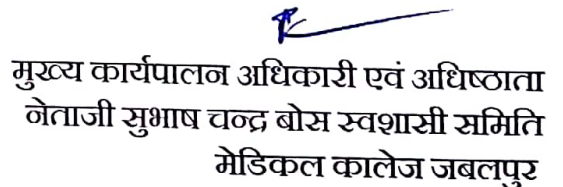 मुख्य कार्यपालन अधिकारी एवं अधिष्ठाता
नेताजी सुभाष चन्द्र बोस स्वशासी समिति
मेडिकल कालेज जबलपुर